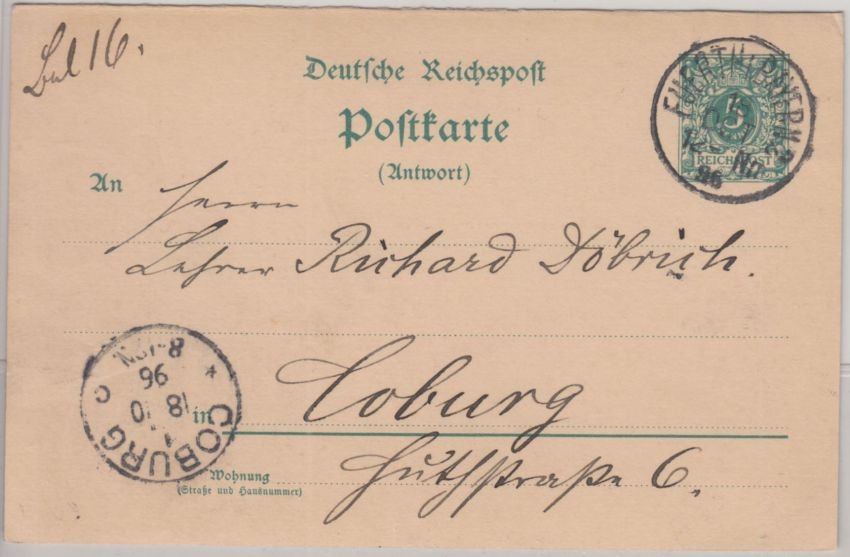 16.
Deutsche Reichspost
Postkarte
(Antwort)
FUERTH I. BAYERN 2
5
REICHSPOST
OCT
12
Nm.
96
An
Herrn
Lehrer Richard Döbrich.
COBURG
18 10
96
8-9 N
C
in Coburg
Wohnung
(Straße und Hausnummer)
Huthstraße 6.